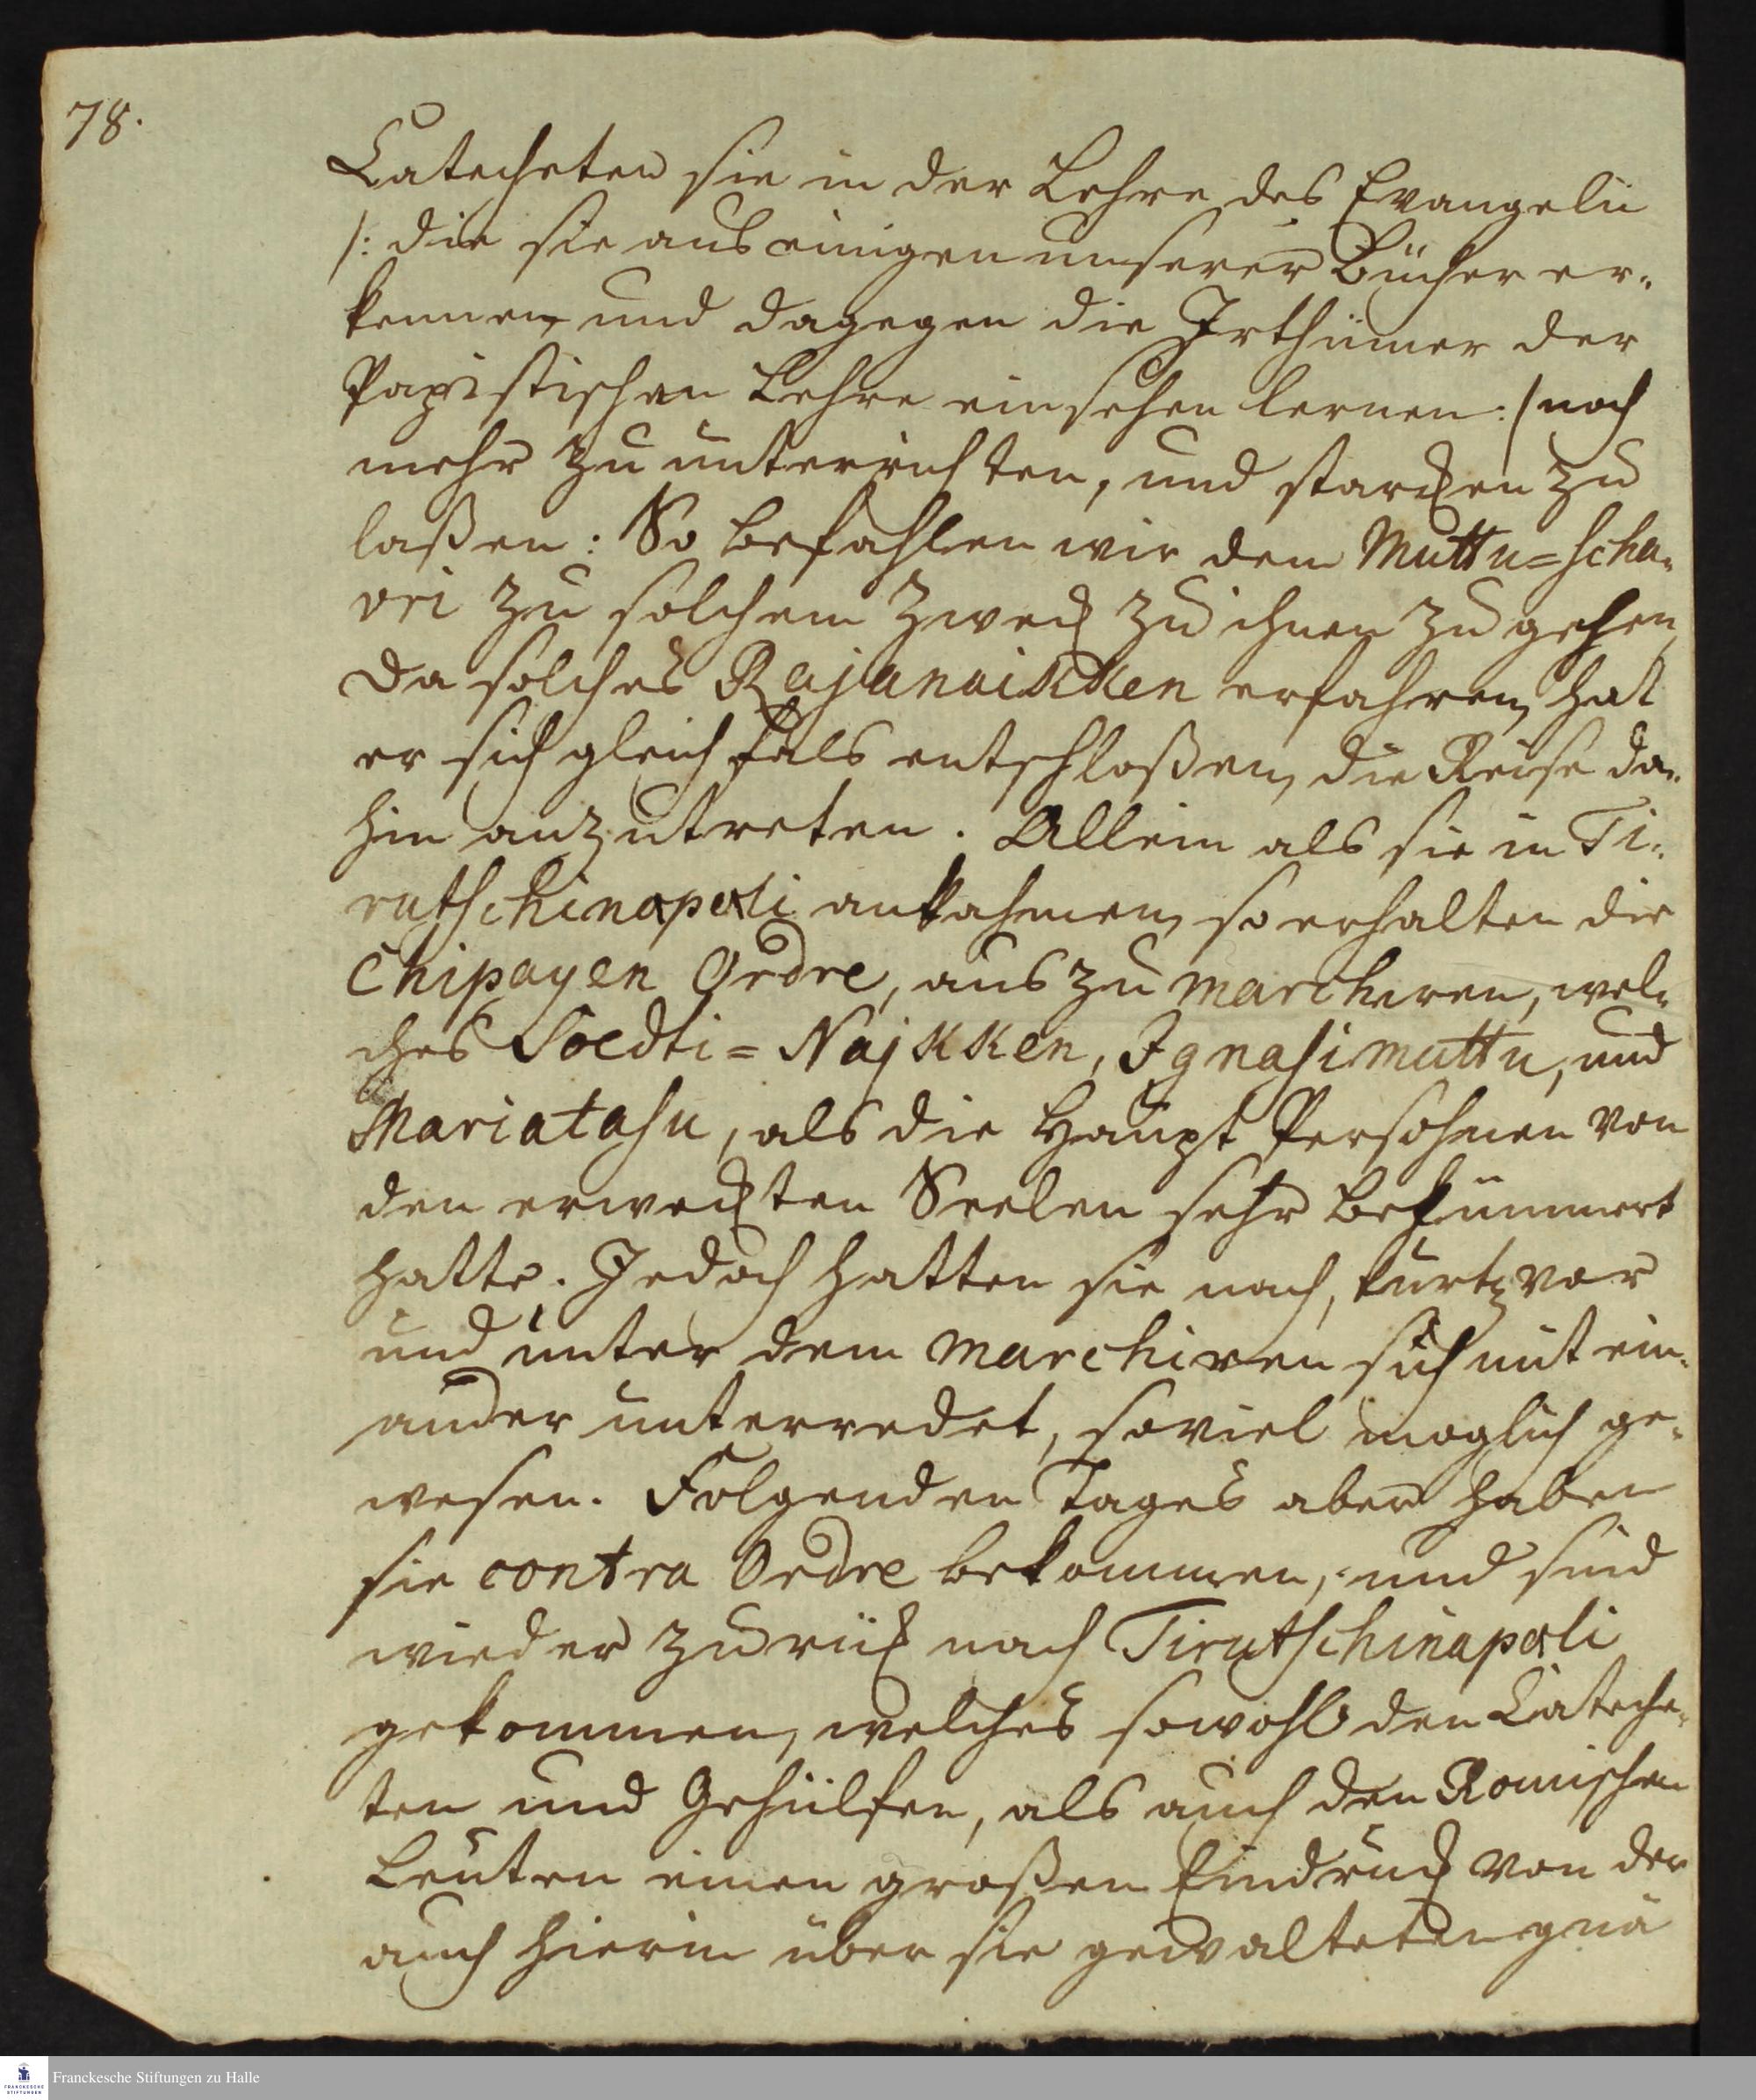 78.
Catecheten sie in der Lehre des Evangelii
/: die sie aus einigen unserer Bücher er-
kennen, und dagegen die Irthümer der
Papistischen Lehre einsehen lernen :/ noch
mehr zu unterrichten, und starcken zu
laßen: So befahlen wir dem Muttu=scha-
vri zu solchem Zweck zu ihnen zu gehen,
da solches Rajanaikken erfahren, hat
er sich gleichfals entschloßen, die Reise da-
hin anzutreten. Allein als sie in Ti-
rutschinapali ankahmen, so erhalten die
Chipayen Ordre, aus zu marchiren, wel-
ches Soedti=Najkken, Ignasimuttu, und
Mariatasu, als die Haupt Persohnen von
den erweckten Seelen sehr bekümmert
hatte. Jedoch hatten sie noch, kurtz vor
und unter dem marchiren sich mit ein-
ander unterredet, soviel moglich ge-
wesen. Folgenden Tages aber haben
sie contra Ordre bekommen, und sind
wieder zurück nach Tirutschinapali
gekommen, welches sowohl den Cateche-
ten und Gehülfen, als auch den Romischen
Leuten einen großen Eindruck von der
auch hierin über sie gewalteten gnä
Franckesche Stiftungen zu Halle
FRANCKESCHE
STIFTUNGEN